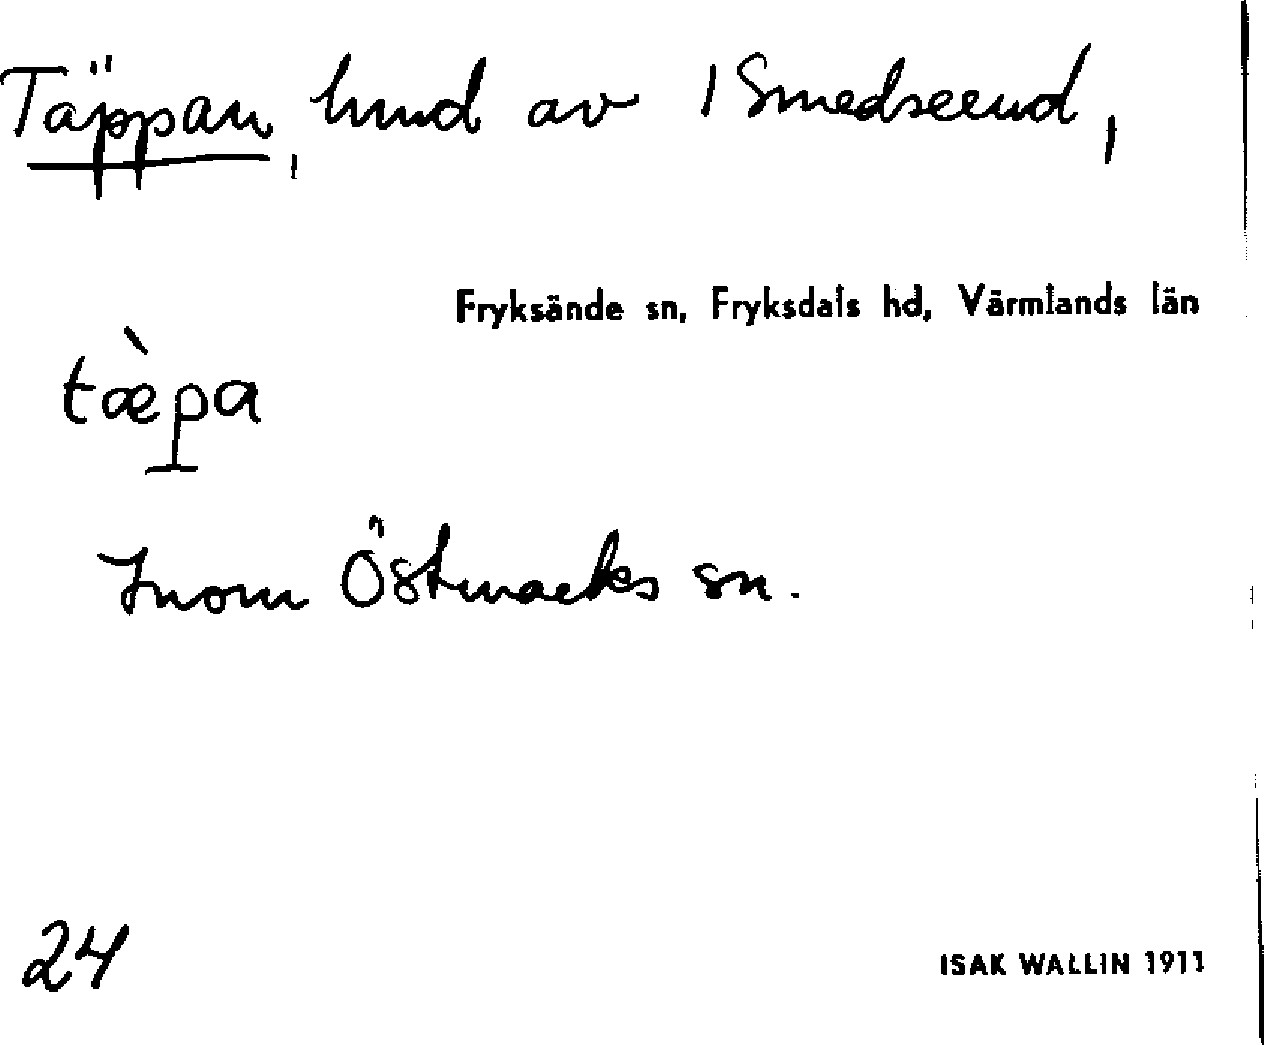 Täppan, hmd av 1 Smedserud,
Fryksände sn, Fryksdals hd, Värmlands län
tæ̀pa
Inom Östmarks sn.
24
ISAK WALLIN 1911